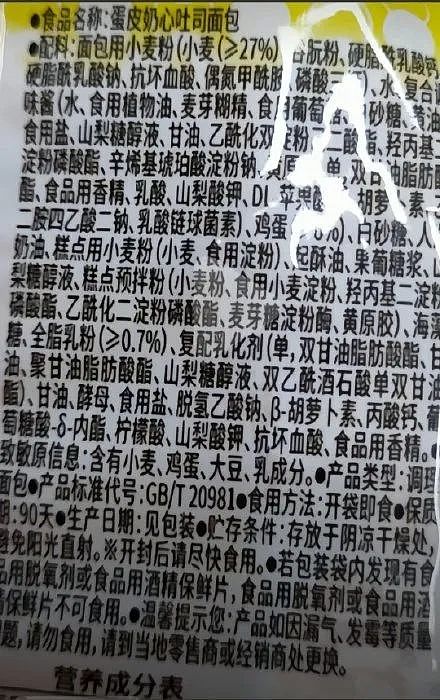 ●食品名称:蛋皮奶心吐司面包
●配料:面包用小麦粉(小麦(≥27%) 谷朊粉、硬脂酰乳酸钙
硬脂酰乳酸钠、抗坏血酸、偶氮甲酰胺 磷酸三钙)、水、复合调
味酱(水、食用植物油、麦芽糊精、食用葡萄 白砂糖、黄油
食用盐、山梨糖醇液、甘油、乙酰化双淀粉 二酸酯、羟丙基二
淀粉磷酸酯、辛烯基琥珀酸淀粉钠、黄原 单,双甘油脂肪酸
酯、食品用香精、乳酸、山梨酸钾、DL 苹果酸 胡萝 素
二胺四乙酸二钠、乳酸链球菌素)、鸡蛋 %)、白砂糖、人
奶油、糕点用小麦粉(小麦、食用淀粉) 起酥油、果葡糖浆、山
梨糖醇液、糕点预拌粉(小麦粉、食用小麦淀粉、羟丙基二淀粉
磷酸酯、乙酰化二淀粉磷酸酯、麦芽糖淀粉酶、黄原胶)、海藻
糖、全脂乳粉(≥0.7%)、复配乳化剂(单,双甘油脂肪酸酯、甘
油、聚甘油脂肪酸酯、山梨糖醇液、双乙酰酒石酸单双甘油
酯)、甘油、酵母、食用盐、脱氢乙酸钠、β-胡萝卜素、丙酸钙、葡
萄糖酸-δ-内酯、柠檬酸、山梨酸钾、抗坏血酸、食品用香精。●
致敏原信息:含有小麦、鸡蛋、大豆、乳成分。●产品类型:调理
面包●产品标准代号:GB/T 20981●食用方法:开袋即食●保质
期:90天●生产日期:见包装●贮存条件:存放于阴凉干燥处,
避免阳光直射。※开封后请尽快食用。●若包装袋内发现有食
品用脱氧剂或食品用酒精保鲜片,食品用脱氧剂或食品用酒
精保鲜片不可食用。●温馨提示您:产品如因漏气、发霉等质量
问题,请勿食用,请到当地零售商或经销商处更换。
营养成分表